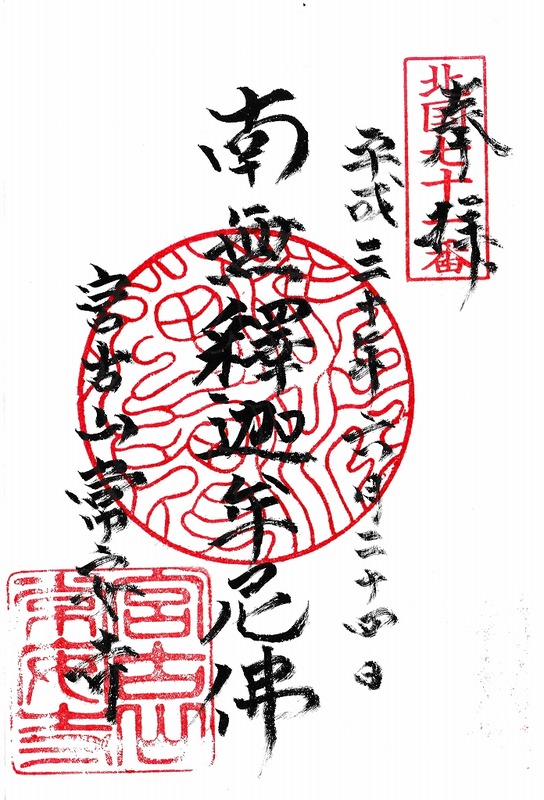 奉拝
北国七十番
平成三十年六月二十四日
南無釋迦牟尼佛
宮古山常安寺
宮古山
常安寺